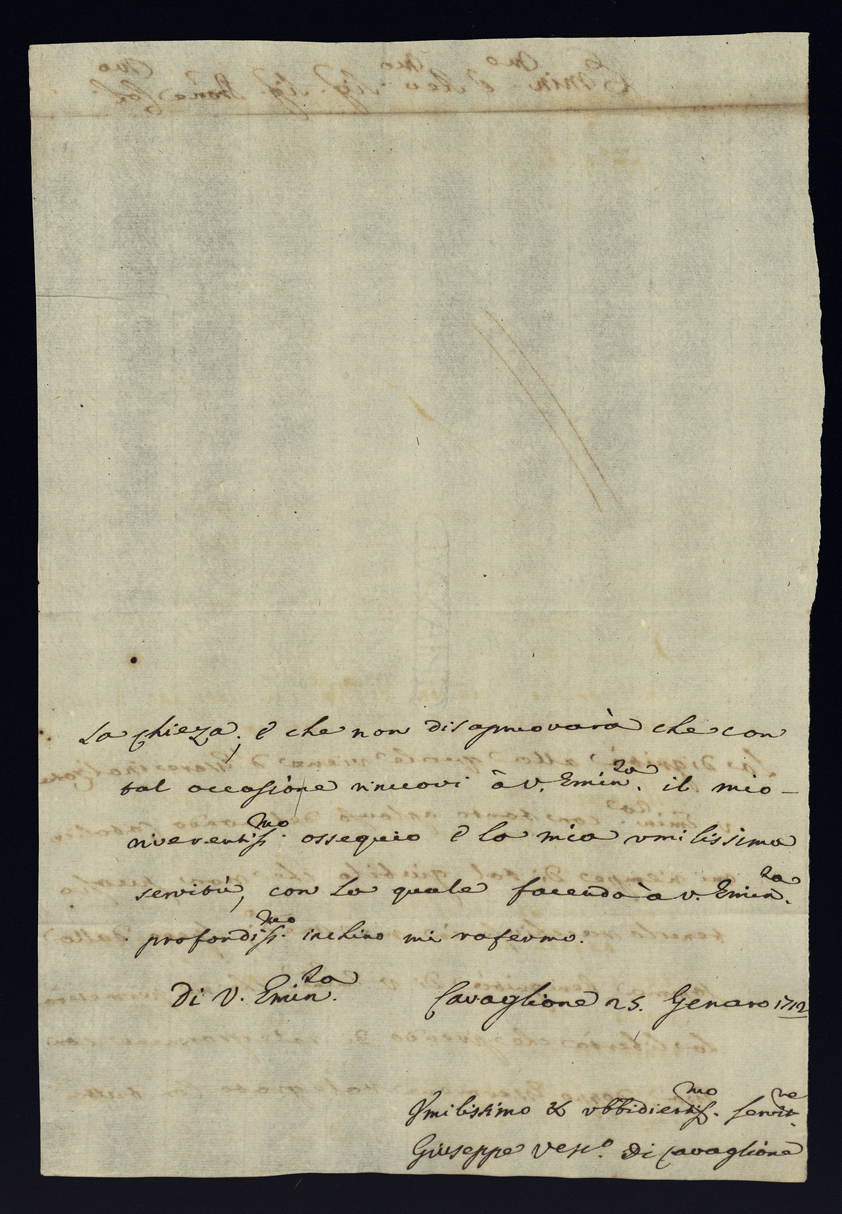 La Chieza, e che non disapprovarà che con
tal occasione rinuovi à V. Emin.za il mio
riverentiss.mo ossequio e la mia umilissima
servitù, con la quale facendo à V. Emin.za
profondiss.mo inchino mi rafermo.
Di V. Emin.za Cavaglione 25. Genaro 1712
Vmilissimo & vbbidientiss.mo servit.re
Giuseppe Vesc.o di Cavaglione